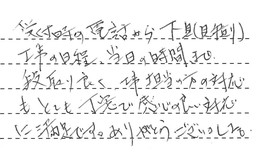 受付時の電話から下見(見積り)
工事の日程、当日の時間まで
段取り良く工事担当の方の対応
もとても丁寧で感じの良い対応
に満足です。ありがとうございました。